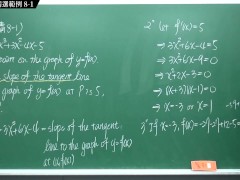 選範例 8-1
8-1)
x³+3x²-4x-5
point on the graph of y=f(x)
slope of the tangent line
graph of y=f(x) at P is 5.
3x²+6x-4 = slope of the tangent
line to the graph of y=f(x)
at (x,f(x))
2° Let f'(x)=5
⇒ 3x²+6x-4=5
⇒ 3x²+6x-9=0
⇒ x²+2x-3=0
⇒ (x+3)(x-1)=0
⇒ x=-3 or x=1
3° If x=-3, f(x)=-27+27+12-5=